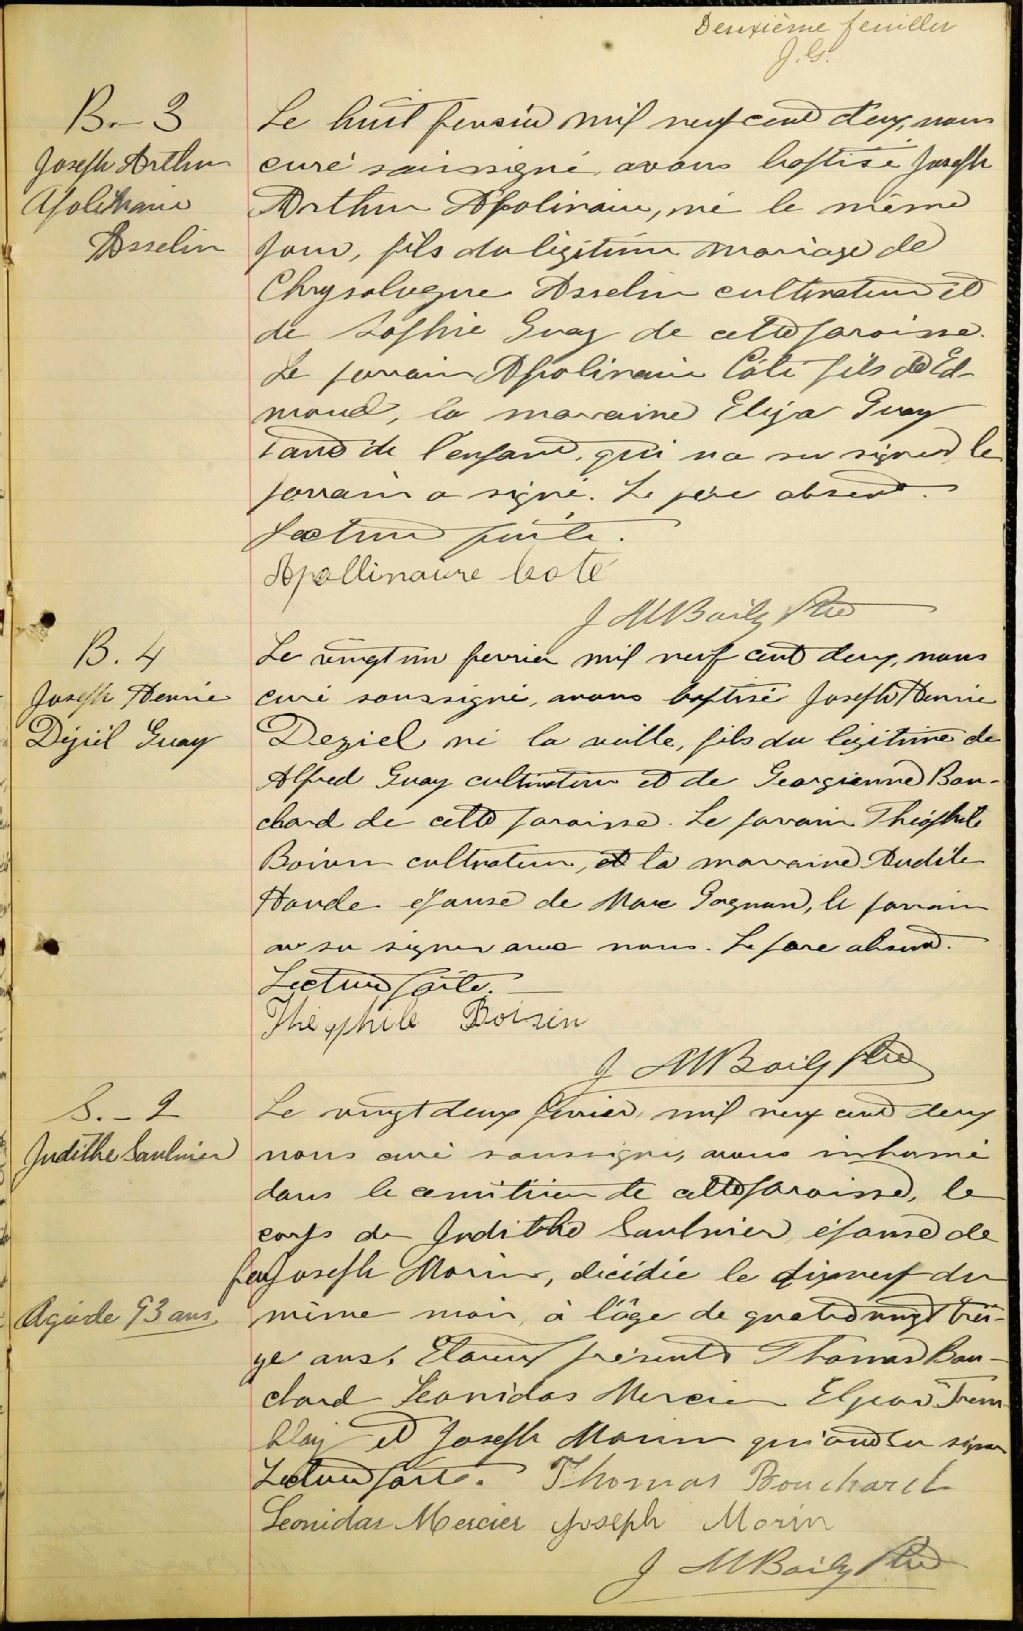 Deuxième feuillet
J. G.
B.- 3
Joseph Arthur
Apolinaire
Asselin
Le huit fevrier mil neuf cent deux, nous
curé soussigné, avons baptisé Joseph
Arthur Apolinaire, né le même
jour, fils du légitime mariage de
Chrysologue Asselin cultivateur et
de Sophie Guay de cette paroisse.
Le parrain Apolinaire Côté fils de Ed-
mond, la marraine Eliza Guay
tante de l'enfant, qui n'a su signer, le
parrain a signé. Le père absent.
Lecture faite.
Apollinaire Coté
J M Baily Ptre
B. 4
Joseph Henrie
Déziel Guay
Le vingt un fevrier mil neuf cent deux, nous
curé soussigné, avons baptisé Joseph Henrie
Deziel né la veille, fils du légitime de
Alfred Guay cultivateur et de Georgienne Bou-
chard de cette paroisse. Le parrain Théophile
Boivin cultivateur, et la marraine
épouse de Marc Gagnon, le parrain
a su signer avec nous. Le père absent.
Lecture faite.
Théophile Boivin
J M Baily Ptre
S. - 2
Judithe Saulnier
Agée de 93 ans
Le vingt deux fevrier, mil neuf cent deux
nous curé soussigné, avons inhumé
dans le cimetière de cette paroisse, le
corps de Judithe Saulnier épouse de
feu Joseph Morin, décédée le dixneuf du
même mois, à l'âge de quatre vingt trei-
ze ans. Etaient présents Thomas Bou-
chard Leonidas Mercier Elzear Trem
blay et Joseph Morin qui ont su signer
Lecture faite. Thomas Bouchard
Leonidas Mercier Joseph Morin
J M Baily Ptre